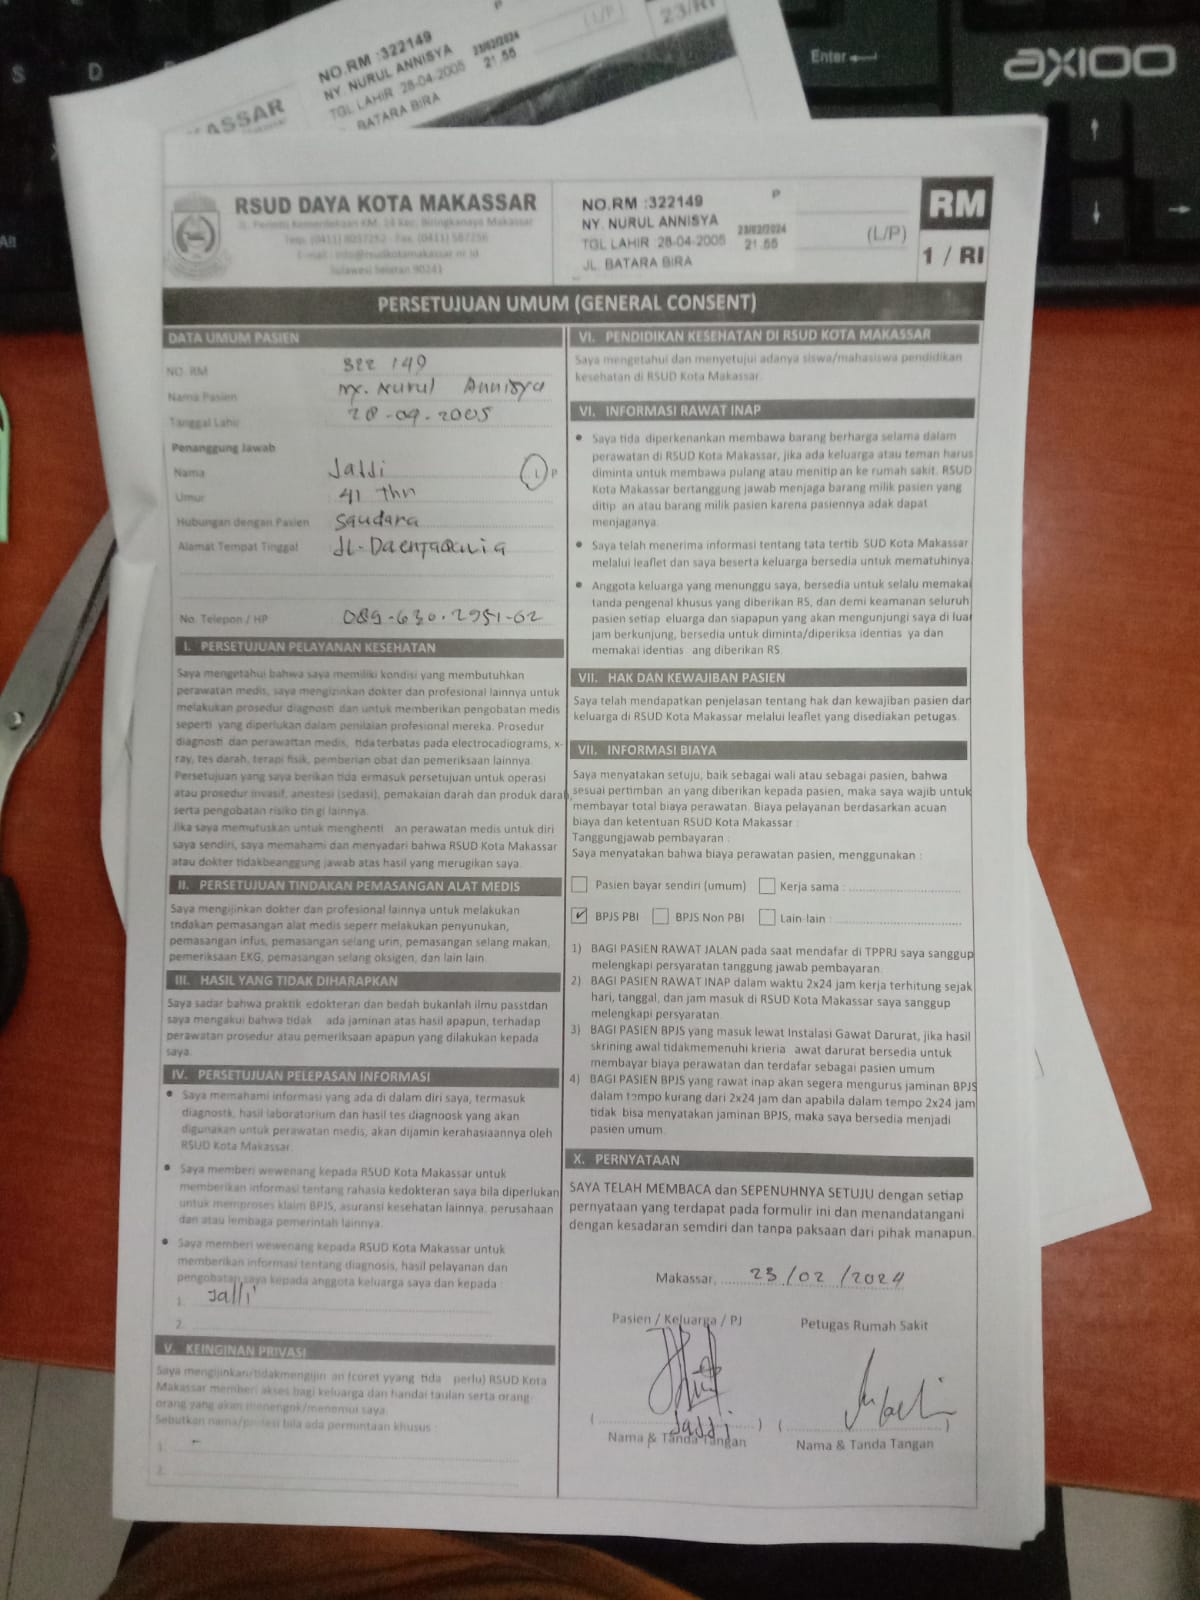 NO.RM :322149
NY. NURUL ANNISYA
TGL LAHIR 28-04-2005
BATARA BIRA
23/02/2024
21.55
P
(L/P)
23/RI
KASSAR
S
D
Enter
AXIOO
All
RSUD DAYA KOTA MAKASSAR
Jl. Perintis Kemerdekaan KM. 14 Kec. Biringkanaya Makassar
Sulawesi Selatan 90241
NO.RM :322149
NY. NURUL ANNISYA
TGL LAHIR : 28-04-2005
JL. BATARA BIRA
P
23/02/2024
21.55
(L/P)
RM
1 / RI
PERSETUJUAN UMUM (GENERAL CONSENT)
DATA UMUM PASIEN
NO. RM 322 149
Nama Pasien Nurul Annisya
Tanggal Lahir 2005
Penanggung Jawab
Nama Jalli L P
Umur 41 thn
Hubungan dengan Pasien Saudara
Alamat Tempat Tinggal
No. Telepon / HP 089-630-2951-62
I. PERSETUJUAN PELAYANAN KESEHATAN
Saya mengetahui bahwa saya memiliki kondisi yang membutuhkan
perawatan medis, saya mengizinkan dokter dan profesional lainnya untuk
melakukan prosedur diagnosti dan untuk memberikan pengobatan medis
seperti yang diperlukan dalam penilaian profesional mereka. Prosedur
diagnosti dan perawattan medis, tida terbatas pada electrocadiograms, x-
ray, tes darah, terapi fisik, pemberian obat dan pemeriksaan lainnya.
Persetujuan yang saya berikan tida ermasuk persetujuan untuk operasi
atau prosedur invasif, anestesi (sedasi), pemakaian darah dan produk darah,
serta pengobatan risiko tin gi lainnya.
Jika saya memutuskan untuk menghenti an perawatan medis untuk diri
saya sendiri, saya memahami dan menyadari bahwa RSUD Kota Makassar
atau dokter tidakbeanggung jawab atas hasil yang merugikan saya.
II. PERSETUJUAN TINDAKAN PEMASANGAN ALAT MEDIS
Saya mengijinkan dokter dan profesional lainnya untuk melakukan
tndakan pemasangan alat medis seperr melakukan penyunukan,
pemasangan infus, pemasangan selang urin, pemasangan selang makan,
pemeriksaan EKG, pemasangan selang oksigen, dan lain lain.
III. HASIL YANG TIDAK DIHARAPKAN
Saya sadar bahwa praktik edokteran dan bedah bukanlah ilmu passtdan
saya mengakui bahwa tidak ada jaminan atas hasil apapun, terhadap
perawatan prosedur atau pemeriksaan apapun yang dilakukan kepada
saya.
IV. PERSETUJUAN PELEPASAN INFORMASI
• Saya memahami informasi yang ada di dalam diri saya, termasuk
diagnostk, hasil laboratorium dan hasil tes diagnoosk yang akan
digunakan untuk perawatan medis, akan dijamin kerahasiaannya oleh
RSUD Kota Makassar.
• Saya memberi wewenang kepada RSUD Kota Makassar untuk
memberikan informasi tentang rahasia kedokteran saya bila diperlukan
untuk memproses klaim BPJS, asuransi kesehatan lainnya, perusahaan
dan atau lembaga pemerintah lainnya.
• Saya memberi wewenang kepada RSUD Kota Makassar untuk
memberikan informasi tentang diagnosis, hasil pelayanan dan
pengobatan saya kepada anggota keluarga saya dan kepada :
1. Jalli
2.
V. KEINGINAN PRIVASI
Saya mengijinkan/tidakmengijin an (coret yyang tida perlu) RSUD Kota
Makassar memberi akses bagi keluarga dan handai taulan serta orang-
orang yang akan menengnk/menemui saya.
Sebutkan nama/profesi bila ada permintaan khusus :
1. -
2.
VI. PENDIDIKAN KESEHATAN DI RSUD KOTA MAKASSAR
Saya mengetahui dan menyetujui adanya siswa/mahasiswa pendidikan
kesehatan di RSUD Kota Makassar.
VI. INFORMASI RAWAT INAP
• Saya tida diperkenankan membawa barang berharga selama dalam
perawatan di RSUD Kota Makassar, jika ada keluarga atau teman harus
diminta untuk membawa pulang atau menitip an ke rumah sakit. RSUD
Kota Makassar bertanggung jawab menjaga barang milik pasien yang
ditip an atau barang milik pasien karena pasiennya adak dapat
menjaganya.
• Saya telah menerima informasi tentang tata tertib SUD Kota Makassar
melalui leaflet dan saya beserta keluarga bersedia untuk mematuhinya.
• Anggota keluarga yang menunggu saya, bersedia untuk selalu memakai
tanda pengenal khusus yang diberikan RS, dan demi keamanan seluruh
pasien setiap eluarga dan siapapun yang akan mengunjungi saya di luar
jam berkunjung, bersedia untuk diminta/diperiksa identias ya dan
memakai identias ang diberikan RS.
VII. HAK DAN KEWAJIBAN PASIEN
Saya telah mendapatkan penjelasan tentang hak dan kewajiban pasien dan
keluarga di RSUD Kota Makassar melalui leaflet yang disediakan petugas.
VII. INFORMASI BIAYA
Saya menyatakan setuju, baik sebagai wali atau sebagai pasien, bahwa
sesuai pertimban an yang diberikan kepada pasien, maka saya wajib untuk
membayar total biaya perawatan. Biaya pelayanan berdasarkan acuan
biaya dan ketentuan RSUD Kota Makassar :
Tanggungjawab pembayaran :
Saya menyatakan bahwa biaya perawatan pasien, menggunakan :
Pasien bayar sendiri (umum) Kerja sama :
✓ BPJS PBI BPJS Non PBI Lain-lain :
1) BAGI PASIEN RAWAT JALAN pada saat mendafar di TPPRJ saya sanggup
melengkapi persyaratan tanggung jawab pembayaran.
2) BAGI PASIEN RAWAT INAP dalam waktu 2x24 jam kerja terhitung sejak
hari, tanggal, dan jam masuk di RSUD Kota Makassar saya sanggup
melengkapi persyaratan.
3) BAGI PASIEN BPJS yang masuk lewat Instalasi Gawat Darurat, jika hasil
skrining awal tidakmemenuhi krieria awat darurat bersedia untuk
membayar biaya perawatan dan terdafar sebagai pasien umum
4) BAGI PASIEN BPJS yang rawat inap akan segera mengurus jaminan BPJS
dalam tempo kurang dari 2x24 jam dan apabila dalam tempo 2x24 jam
tidak bisa menyatakan jaminan BPJS, maka saya bersedia menjadi
pasien umum.
X. PERNYATAAN
SAYA TELAH MEMBACA dan SEPENUHNYA SETUJU dengan setiap
pernyataan yang terdapat pada formulir ini dan menandatangani
dengan kesadaran semdiri dan tanpa paksaan dari pihak manapun.
Makassar, 23 / 02 / 2024
Pasien / Keluarga / PJ Petugas Rumah Sakit
( Jalli ) ( )
Nama & Tanda Tangan Nama & Tanda Tangan